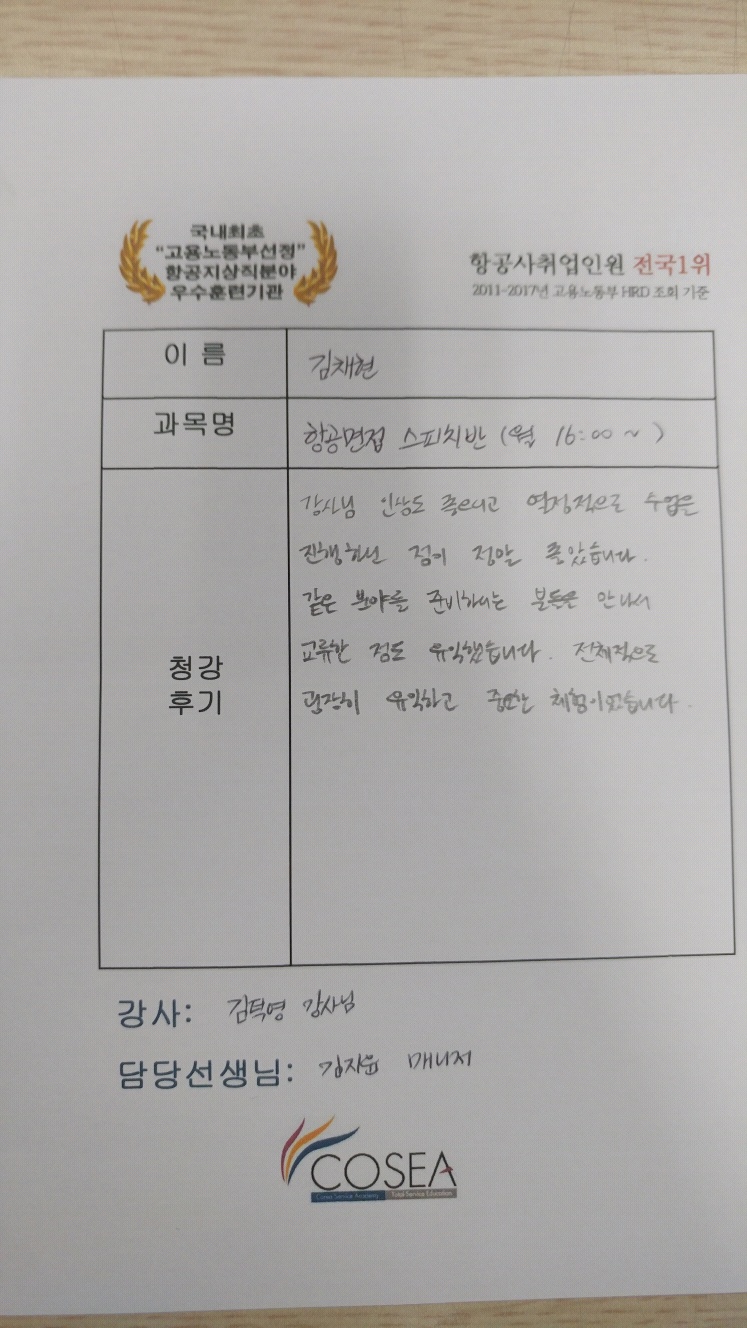 국내최초
"고용노동부선정"
항공지상직분야
우수훈련기관
항공사취업인원 전국1위
2011-2017년 고용노동부 HRD 조회 기준
이 름
김채현
과목명
항공면접 스피치반 (월 16:00 ~ )
청강
후기
강사님 인상도 좋으시고 열정적으로 수업을
진행하신 점이 정말 좋았습니다.
같은 분야를 준비하시는 분들을 만나서
교류한 점도 유익했습니다. 전체적으로
굉장히 유익하고 중요한 체험이었습니다.
강사: 김택영 강사님
담당선생님: 김자윤 매니저
COSEA
Corea Service Academy Total Service Education